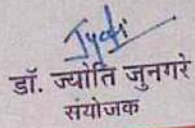 Jyoti
डॉ. ज्योति जुनगरे
संयोजक